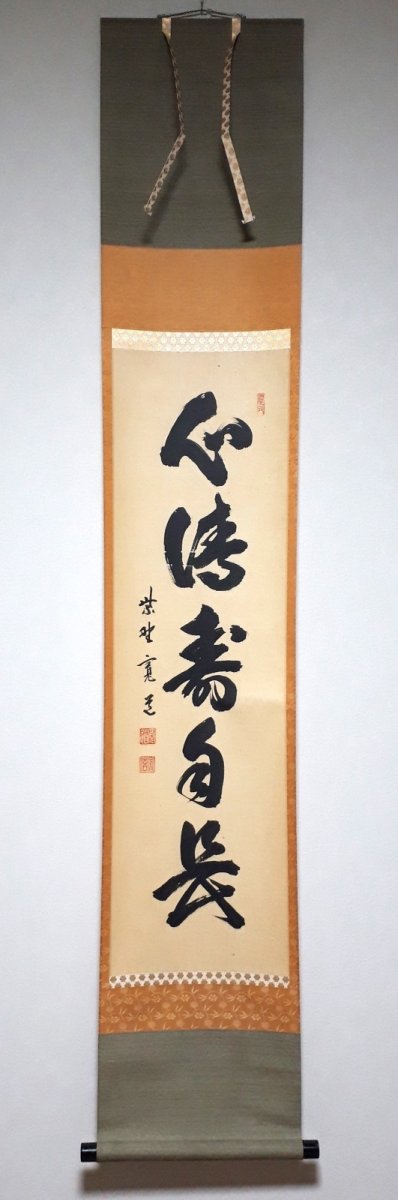 心清壽自長
紫野寛道